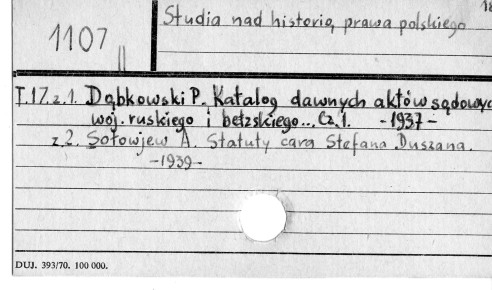 1107 II
Studia nad historią prawa polskiego
T.17.z.1. Dąbkowski P. Katalog dawnych aktów sądowyc
woj. ruskiego i bełzskiego... Cz. 1. -1937-
z.2. Sołowjew A. Statuty cara Stefana Duszana.
-1939-
DUJ. 393/70. 100 000.